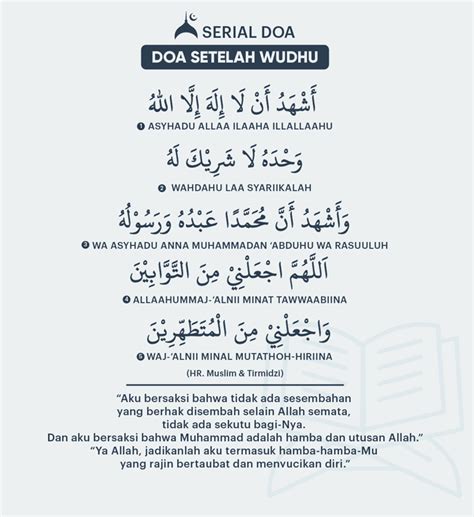 SERIAL DOA
DOA SETELAH WUDHU
أَشْهَدُ أَنْ لَا إِلَهَ إِلَّا اللهُ
1 ASYHADU ALLAA ILAAHA ILLALLAAHU
وَحْدَهُ لَا شَرِيْكَ لَهُ
2 WAHDAHU LAA SYARIIKALAH
وَأَشْهَدُ أَنَّ مُحَمَّدًا عَبْدُهُ وَرَسُوْلُهُ
3 WA ASYHADU ANNA MUHAMMADAN ‘ABDUHU WA RASUULUH
اَللَّهُمَّ اجْعَلْنِيْ مِنَ التَّوَّابِيْنَ
4 ALLAAHUMMAJ-‘ALNII MINAT TAWWAABIINA
وَاجْعَلْنِيْ مِنَ الْمُتَطَهِّرِيْنَ
5 WAJ-‘ALNII MINAL MUTATHOH-HIRIINA
(HR. Muslim & Tirmidzi)
“Aku bersaksi bahwa tidak ada sesembahan
yang berhak disembah selain Allah semata,
tidak ada sekutu bagi-Nya.
Dan aku bersaksi bahwa Muhammad adalah hamba dan utusan Allah.”
“Ya Allah, jadikanlah aku termasuk hamba-hamba-Mu
yang rajin bertaubat dan menyucikan diri.”